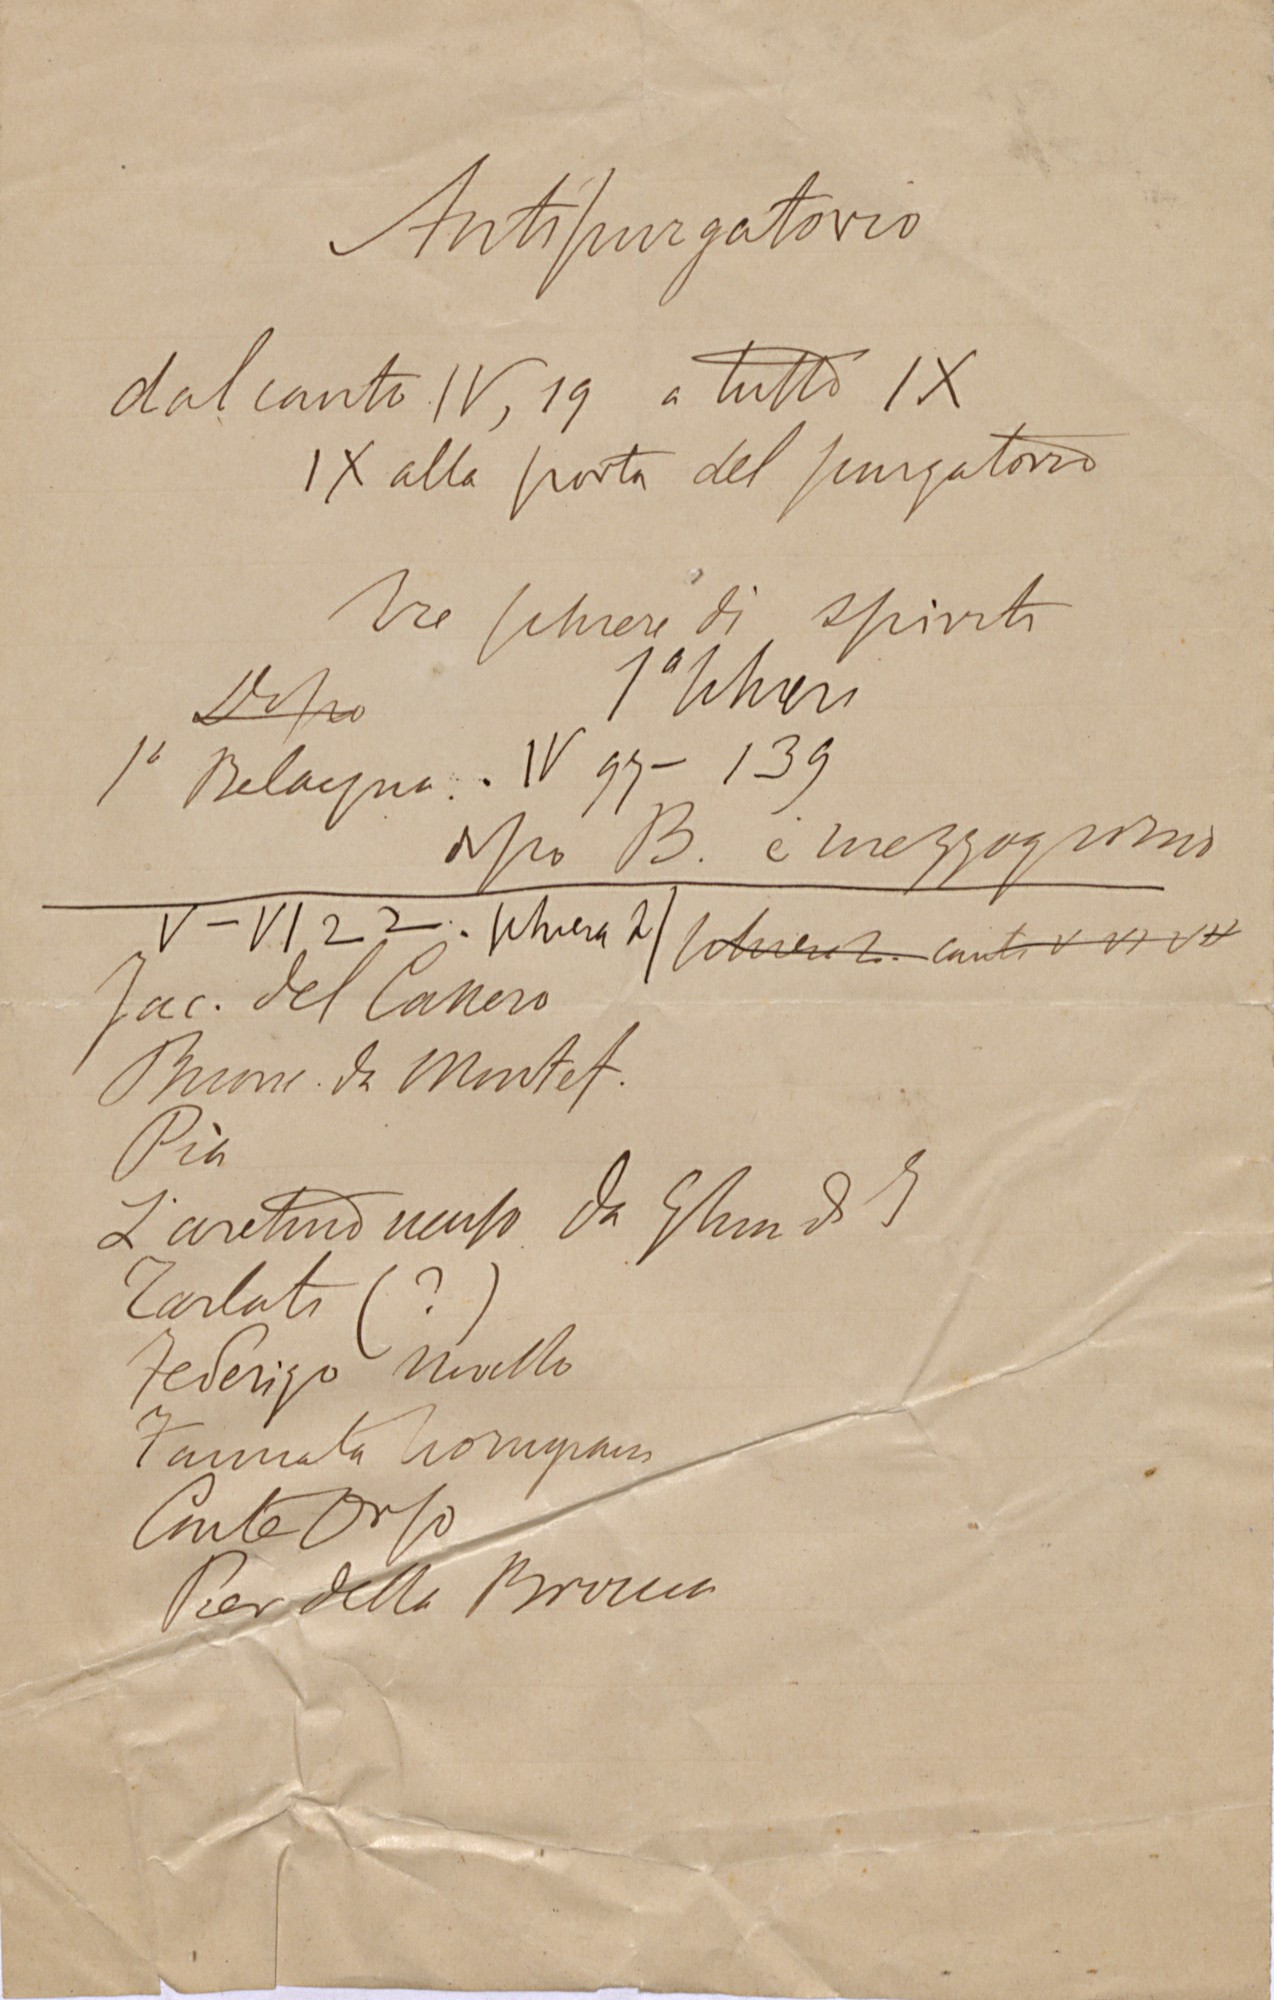 Antipurgatorio
dal canto IV, 19 a tutto IX
IX alla porta del purgatorio
Tre schiere di spiriti
1ª schiera
Dopo
1ª Belacqua . IV 97 - 139
dopo B. è mezzogiorno
V - VI 22 . schiera 2 / schiera 2. canti V VI VII
Jac. del Cassero
Buonc. da Montef.
Pia
L'aretino ucciso da Ghin di T
Tarlati (?)
Federigo Novello
Farinata
Conte Orso
Pier della Broccia